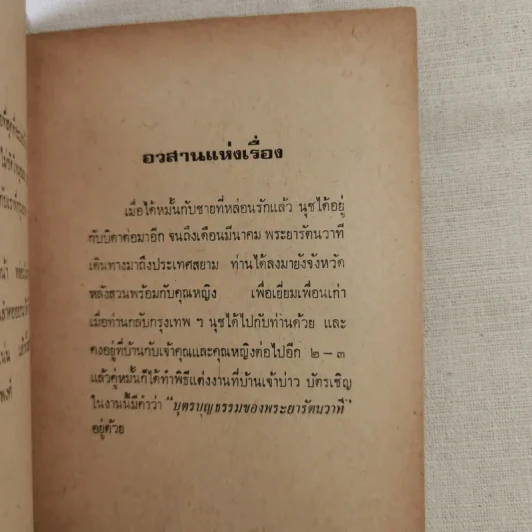 อวสานแห่งเรื่อง
เมื่อได้หมั้นกับชายที่หล่อนรักแล้ว นุชได้อยู่
กับบิดาต่อมาอีก จนถึงเดือนมีนาคม พระยารัตนวาที
เดินทางมาถึงประเทศสยาม ท่านได้ลงมายังจังหวัด
หลังสวนพร้อมกับคุณหญิง เพื่อเยี่ยมเพื่อนเก่า
เมื่อท่านกลับกรุงเทพ ฯ นุชได้ไปกับท่านด้วย และ
คงอยู่ที่บ้านกับเจ้าคุณและคุณหญิงต่อไปอีก ๒ – ๓
แล้วคู่หมั้นก็ได้ทำพิธีแต่งงานที่บ้านเจ้าบ่าว บัตรเชิญ
ในงานนี้มีคำว่า "บุตรบุญธรรมของพระยารัตนวาที"
อยู่ด้วย